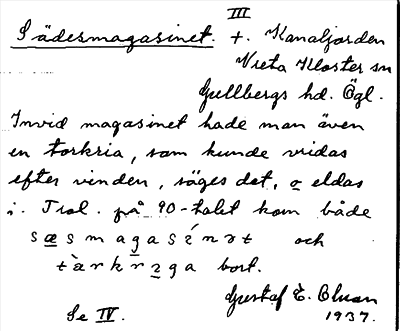 III
Sädesmagasinet. +. Kanaljorden
Vreta Kloster sn
Gullbergs hd. Ögl.
Invid magasinet hade man även
en torkria, som kunde vridas
efter vinden, säges det, o eldas
i. Trol. på 90-talet kom både
och
bort.
Gustaf E. Olson
Se IV. 1937.